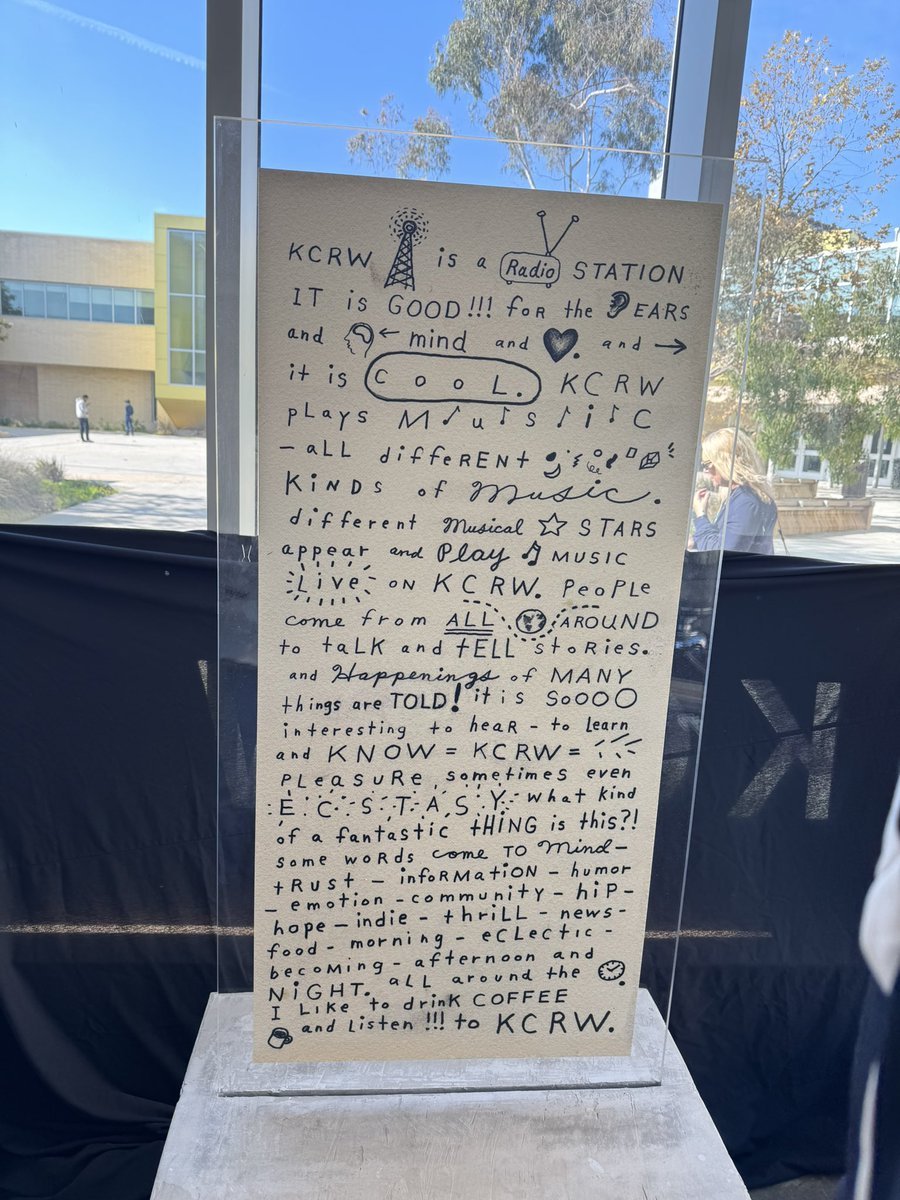 KCRW is a Radio STATION
IT is GOOD!!! foR the EARS
and ← mind and ♥. and →
it is COOL. KCRW
pLays M♪u♪s♪i♪C
– aLL diffeRENt
KiNDS of Music.
different Musical ☆ STARS
appear and Play ♫ MUSIC
Live ON KCRW. PeoPLe
come from ALL AROUND
to taLK and tELL stoRies.
and Happenings of MANY
things are TOLD! it is SoOOO
interesting to heaR - to Learn
and KNOW = KCRW =
PLeaSURe, sometimes even
E.C.S.T.A.S.Y. what kind
of a fantastic tHING is this?!
some woRDs come TO Mind –
tRUST – infoRMATiON – humor
– emotion – community – hiP –
hope – indie – thRiLL – news –
food – morning – eCLectic –
becoMing – afternoon and
NiGHT. aLL around the .
I LIKe to drinK COFFEE
and Listen!!! to KCRW.
K